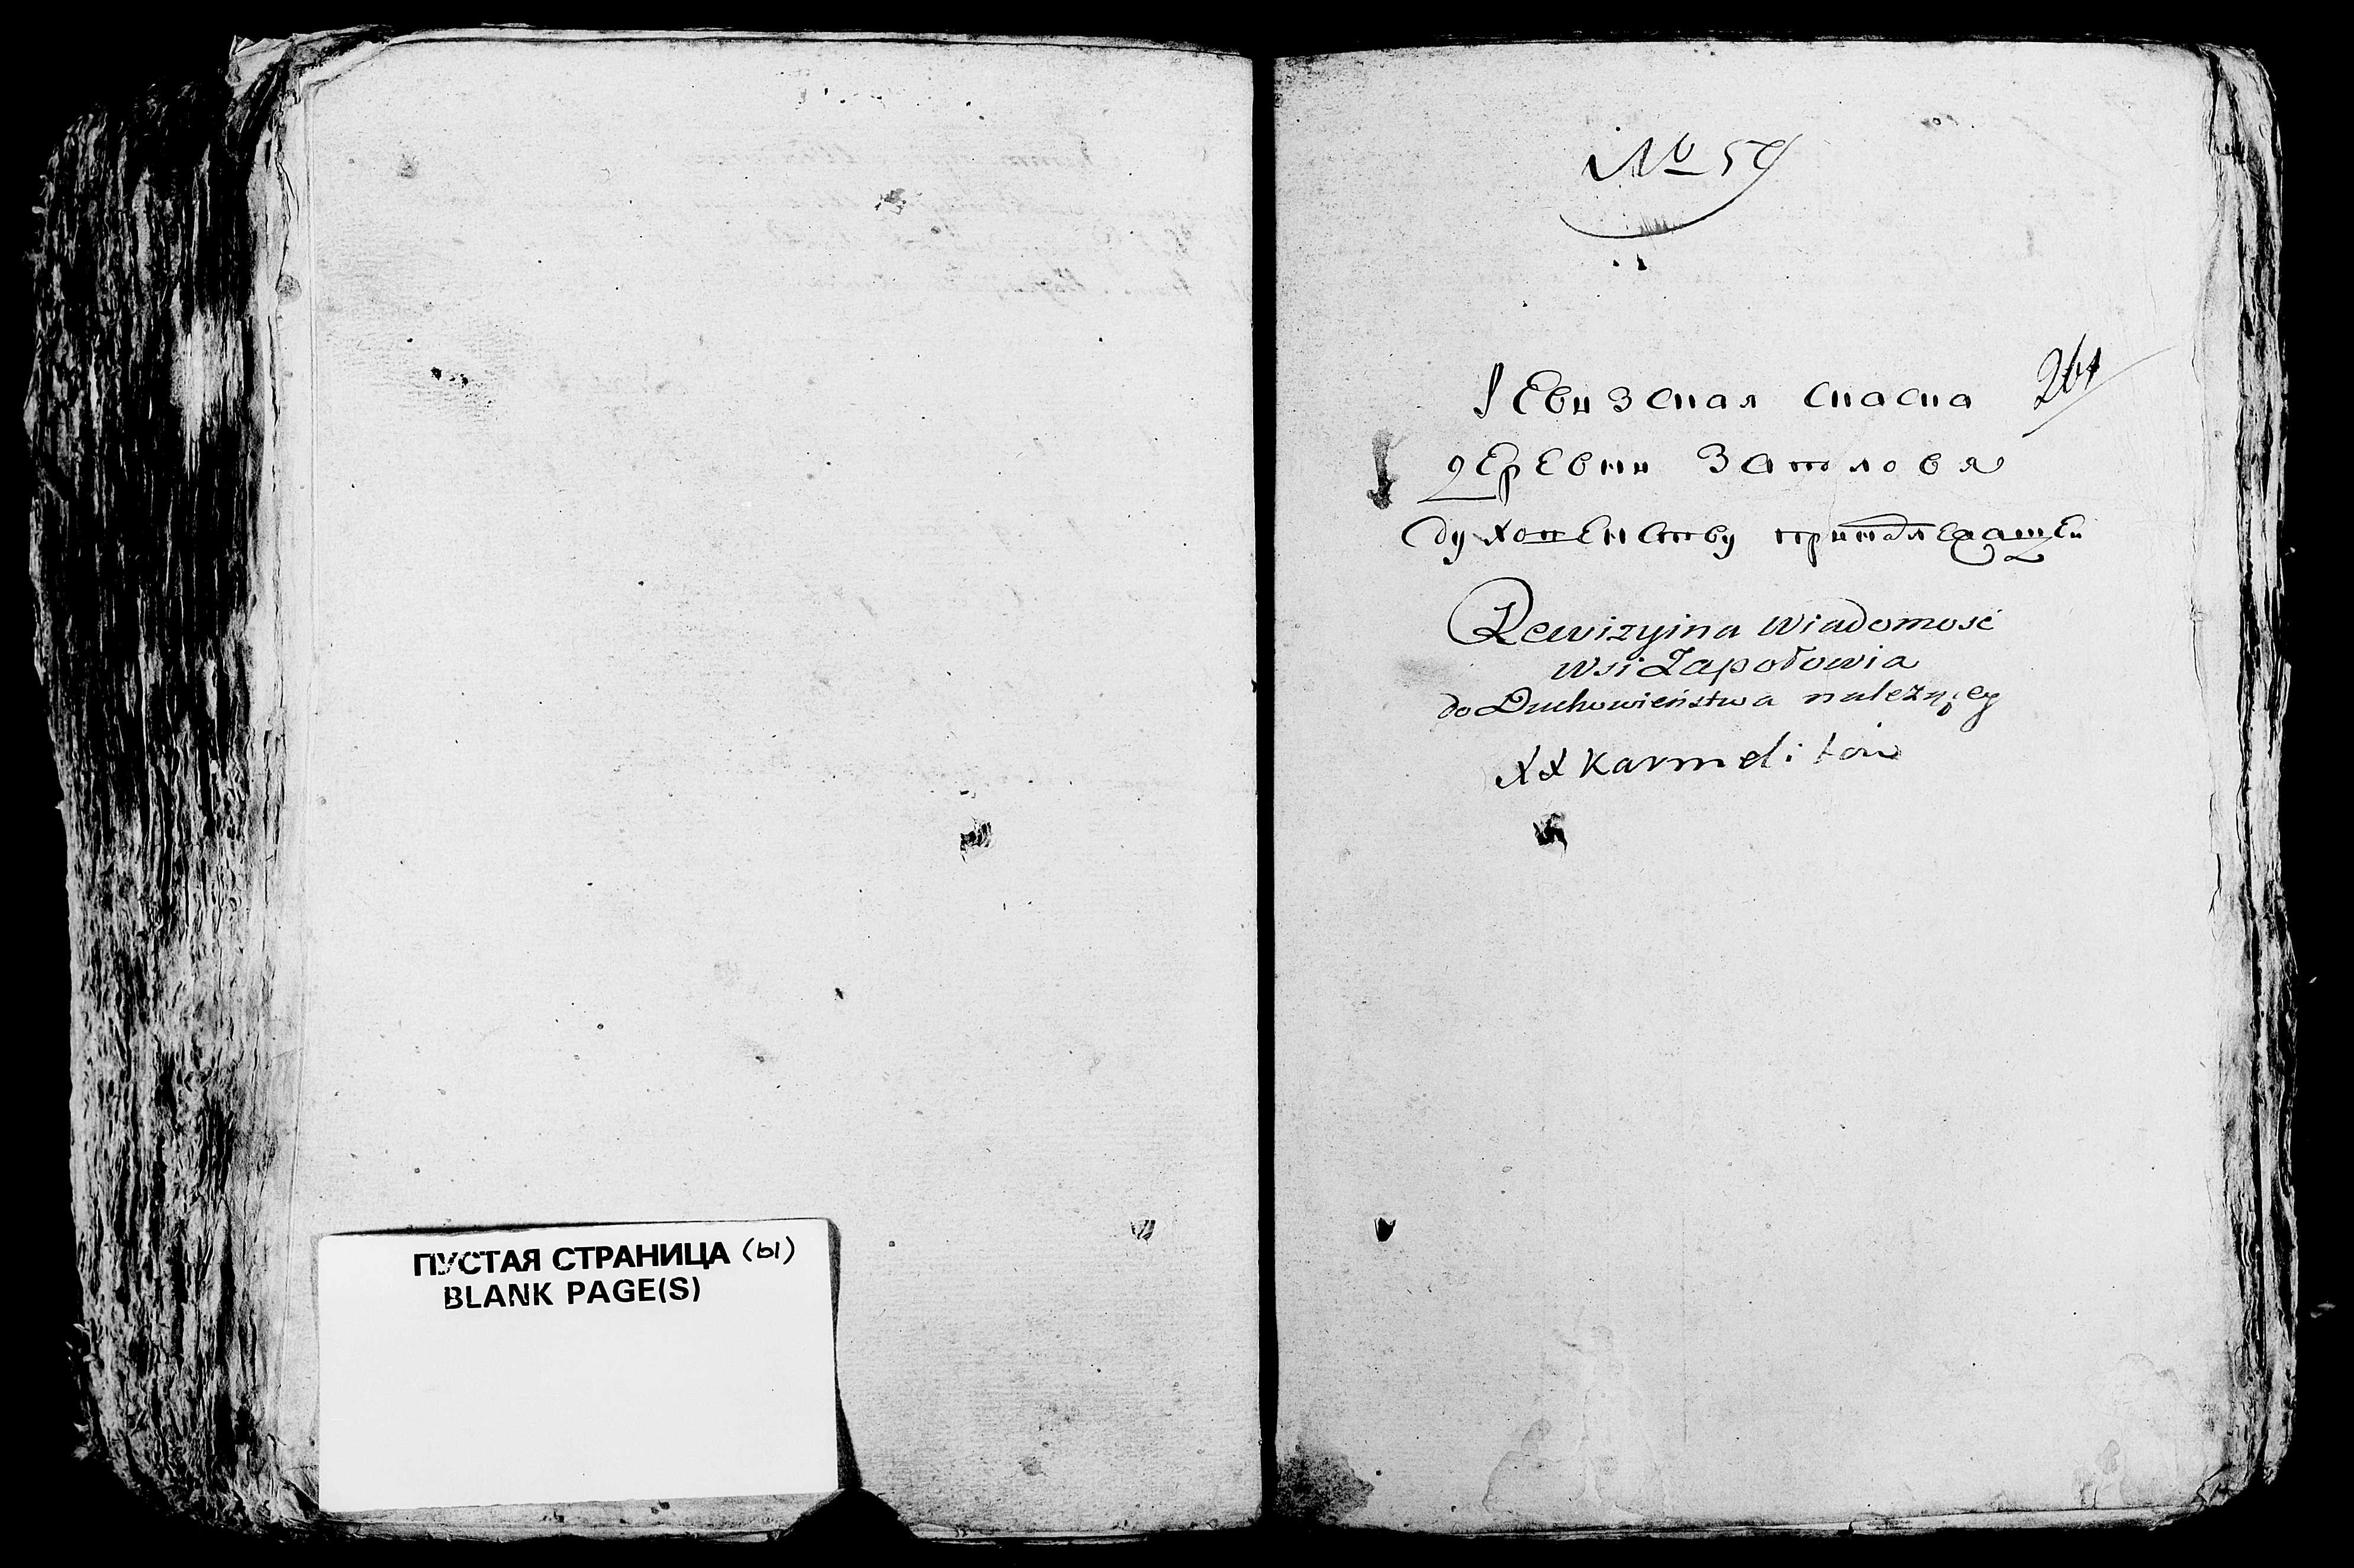 ПУСТАЯ СТРАНИЦА (ы)
BLANK PAGE(S)
№ 54
261
Ревизская скаска
деревни
духовенству принадлежащей
Rewizyina Wiadomosć
wsi Zapołowia
do Duchowieństwa należącey
XX Karmelitow